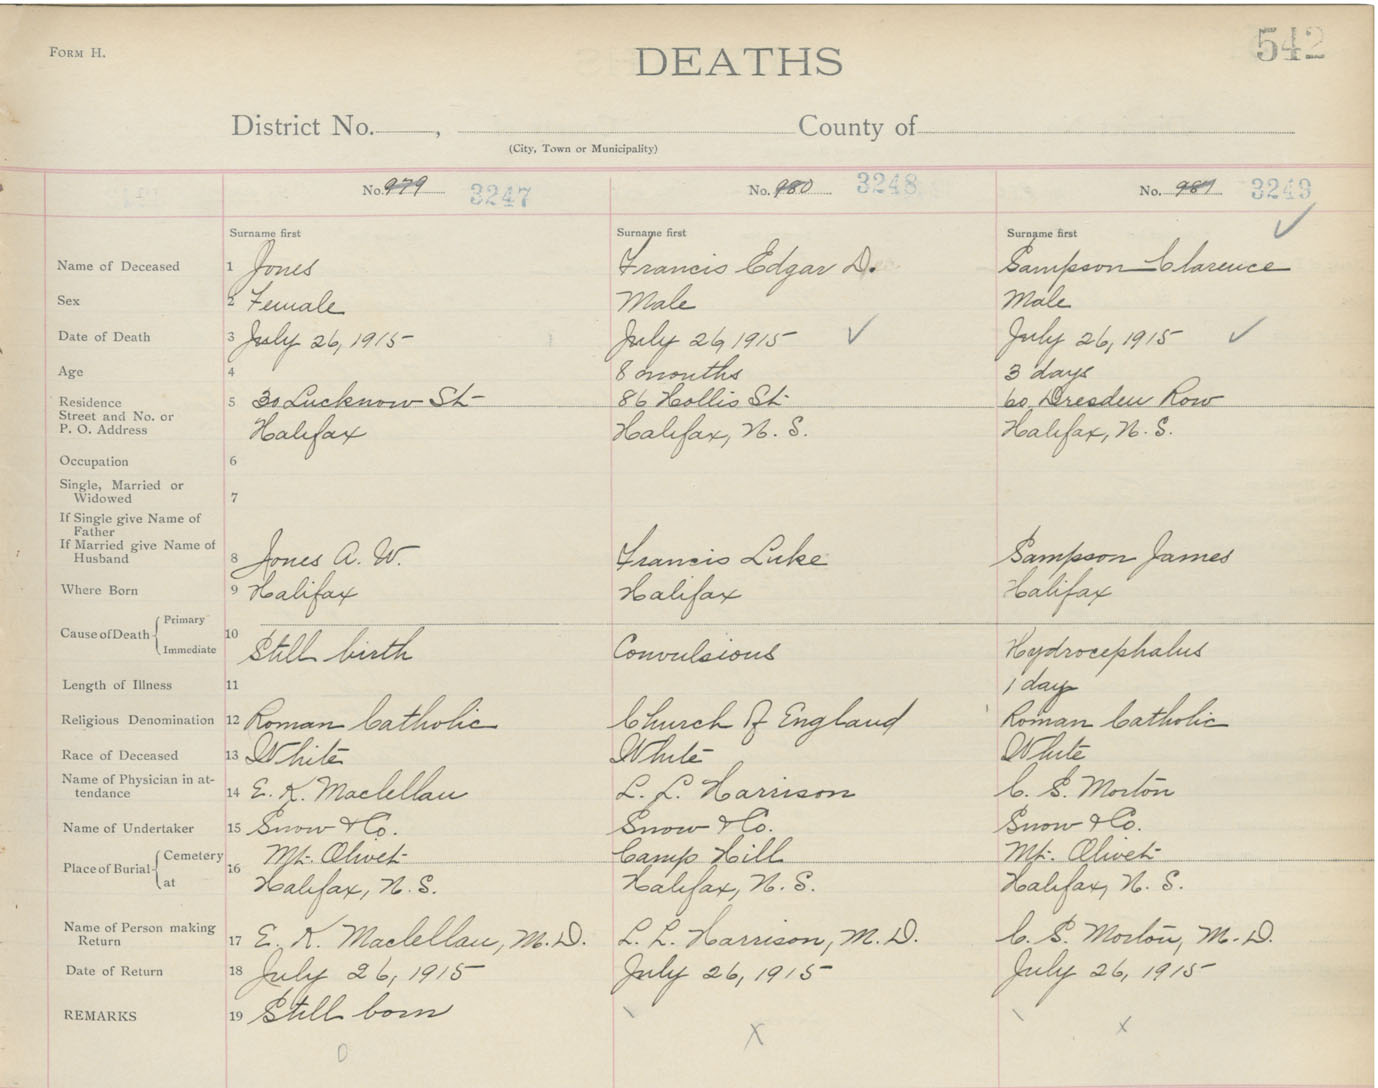 FORM H.
DEATHS
542
District No. , County of
(City, Town or Municipality)
No. 979 3247 No. 980 3248 No. 981 3249
Surname first Surname first Surname first
Name of Deceased 1 Jones Francis Edgar D. Sampson Clarence
Sex 2 Female Male Male
Date of Death 3 July 26, 1915 July 26, 1915 July 26, 1915
Age 4 8 months 3 days
Residence 5 30 Lucknow St 86 Hollis St 60 Dresden Row
Street and No. or
P. O. Address Halifax Halifax, N. S. Halifax, N. S.
Occupation 6
Single, Married or
Widowed 7
If Single give Name of
Father
If Married give Name of
Husband 8 Jones A. W. Francis Luke Sampson James
Where Born 9 Halifax Halifax Halifax
Cause of Death Primary
10
Immediate Still birth Convulsions Hydrocephalus
Length of Illness 11 1 day
Religious Denomination 12 Roman Catholic Church of England Roman Catholic
Race of Deceased 13 White White White
Name of Physician in at-
tendance 14 E. K. Maclellan L. L. Harrison C. S. Morton
Name of Undertaker 15 Snow & Co. Snow & Co. Snow & Co.
Place of Burial Cemetery 16 Mt. Olivet Camp Hill Mt. Olivet
at Halifax, N. S. Halifax, N. S. Halifax, N. S.
Name of Person making
Return 17 E. K. Maclellan, M.D. L. L. Harrison, M.D. C. S. Morton, M.D.
Date of Return 18 July 26, 1915 July 26, 1915 July 26, 1915
REMARKS 19 Still born